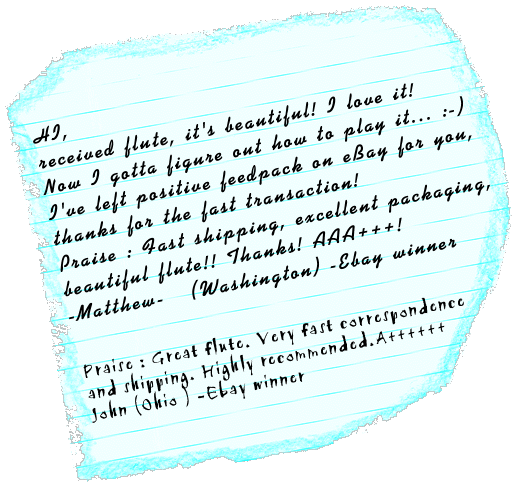 HI,
received flute, it's beautiful! I love it!
Now I gotta figure out how to play it... :-)
I've left positive feedpack on eBay for you,
thanks for the fast transaction!
Praise : Fast shipping, excellent packaging,
beautiful flute!! Thanks! AAA+++!
-Matthew- (Washington) -Ebay winner
Praise : Great flute. Very fast correspondence
and shipping. Highly recommended.A++++++
John (Ohio ) -Ebay winner